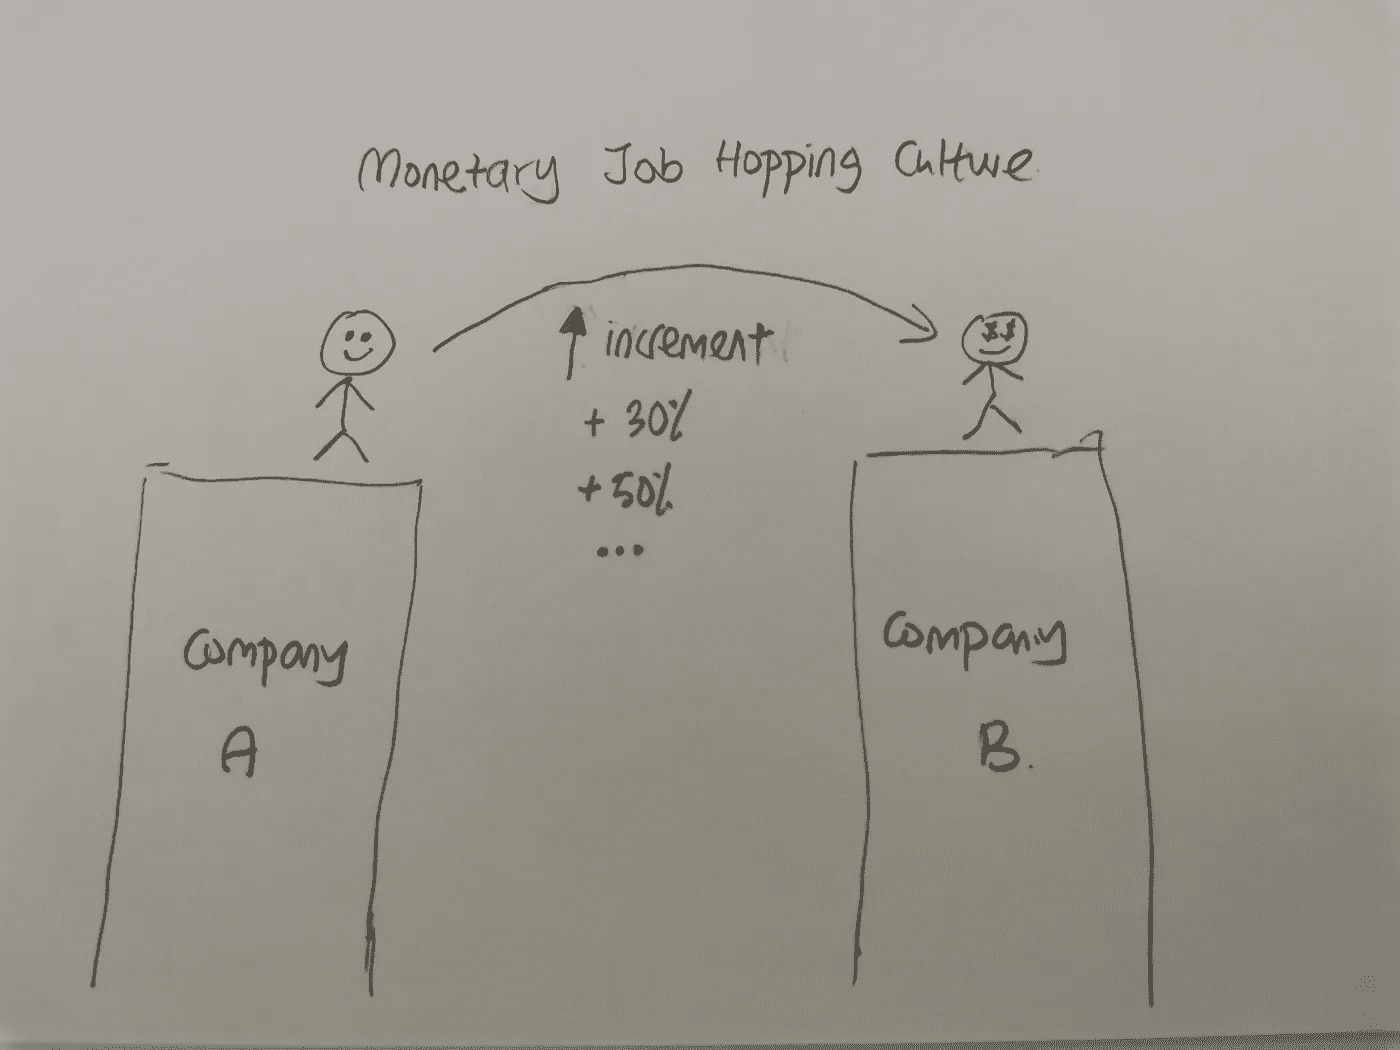 Monetary Job Hopping Culture
increment
+ 30%
+ 50%
...
Company
A
Company
B.